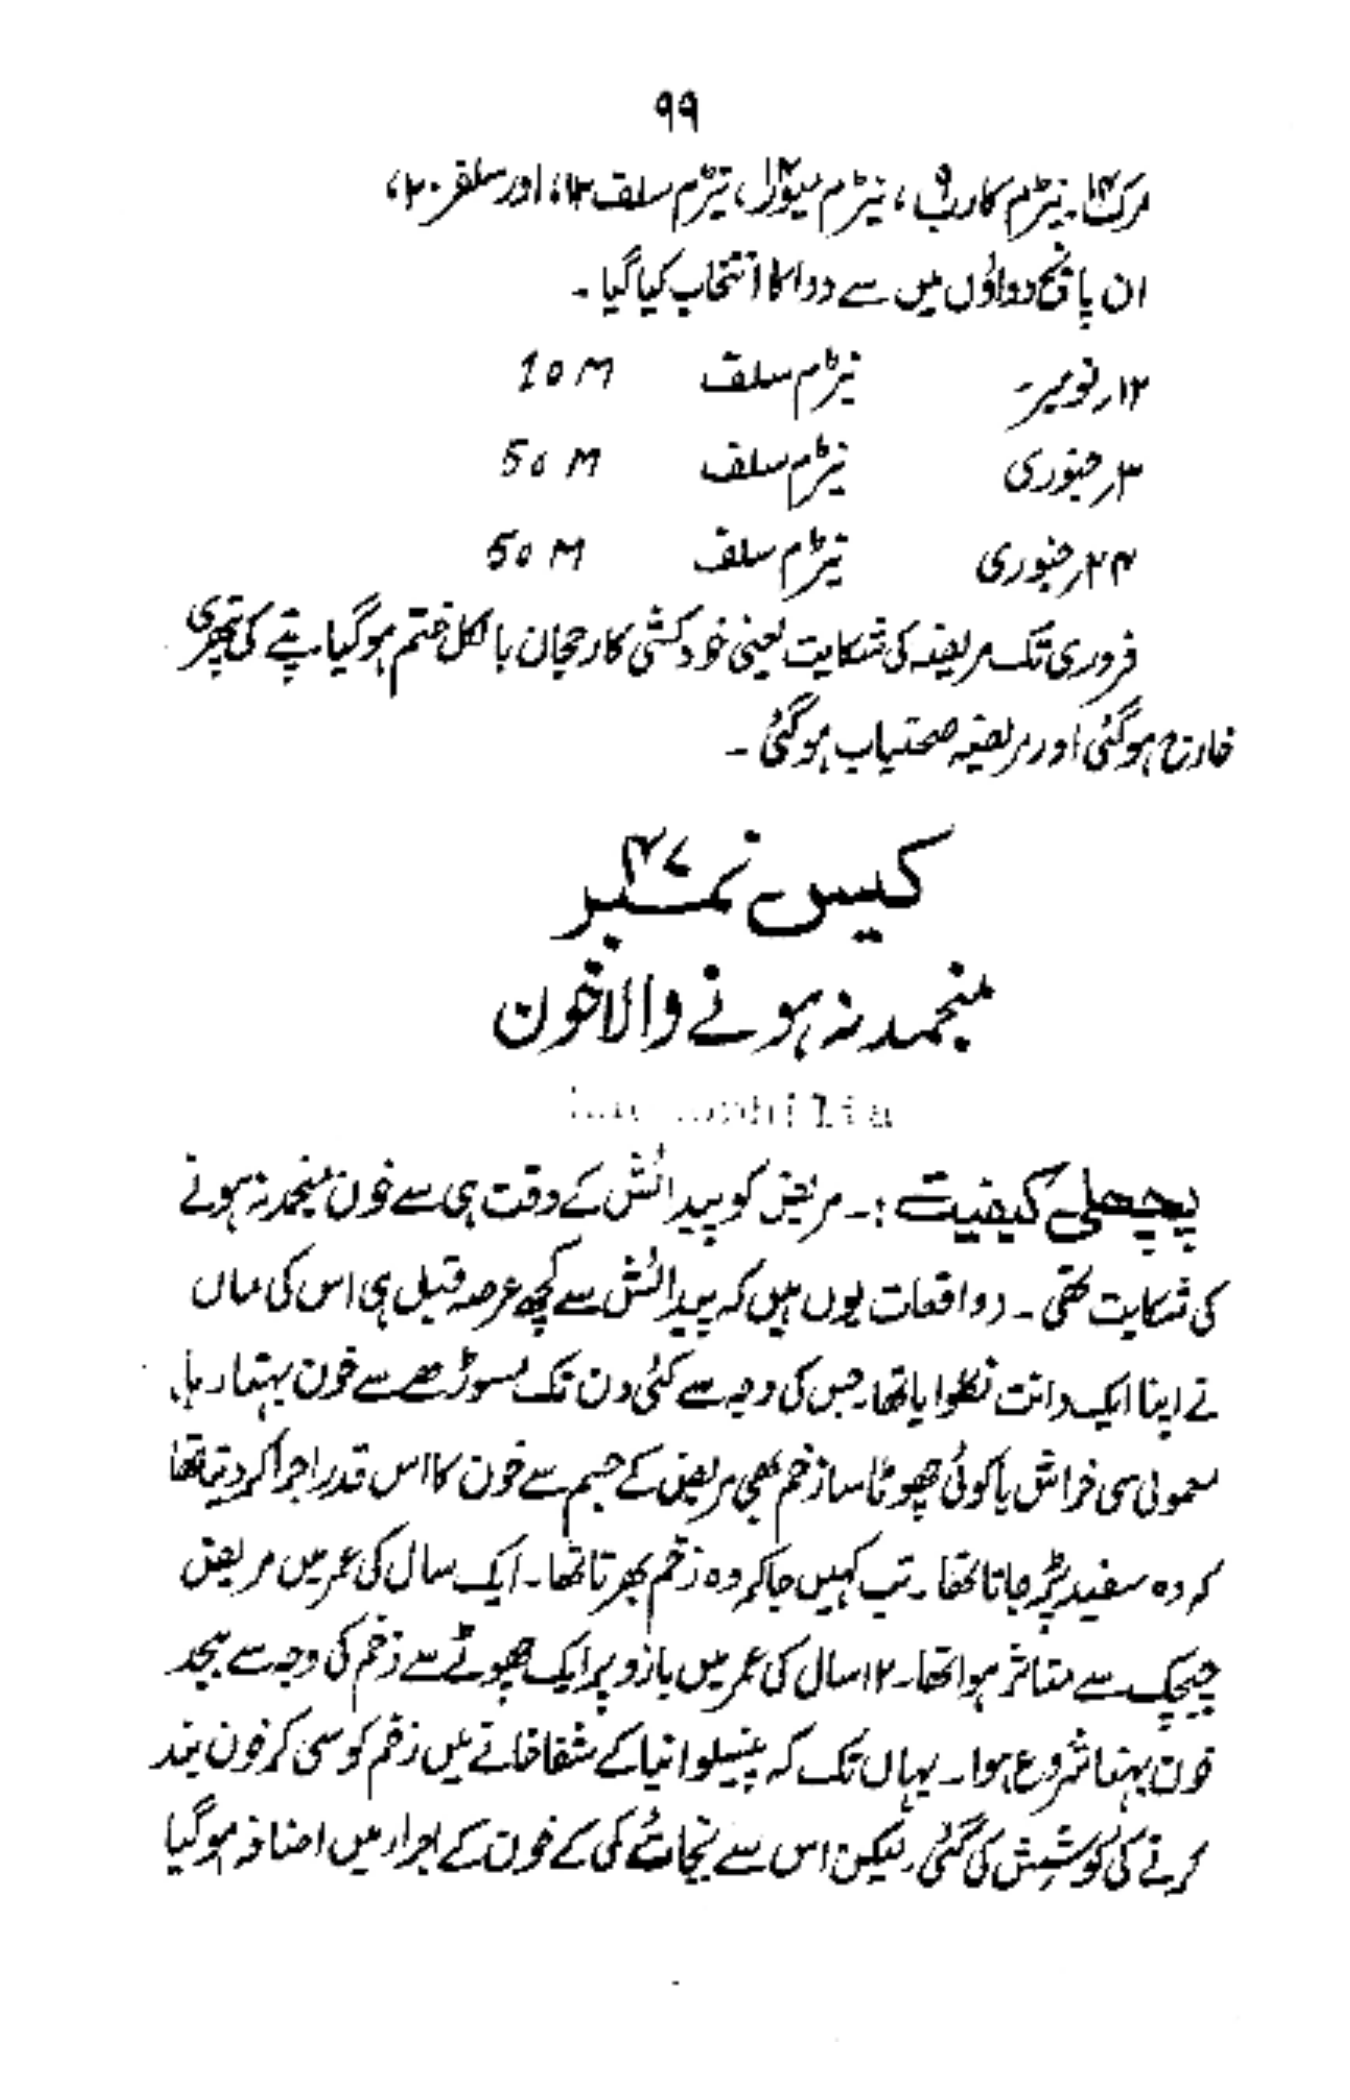 ۹۹
مرک ۱۴۔ نیٹرم کارب ۹، نیٹرم میور ۱۲، نیٹرم سلف ۱۳، اور سلفر ۲۰،
ان پانچ دواؤں میں سے دوا کا انتخاب کیا گیا ۔
۱۲؍ نومبر۔ نیٹرم سلف 10 M
۳؍ جنوری نیٹرم سلف 50 M
۲۴؍ جنوری نیٹرم سلف 50 M
فروری تک مریضہ کی شکایت یعنی خودکشی کا رحجان بالکل ختم ہو گیا۔ پتے کی پتھری
خارج ہو گئی اور مریضہ صحتیاب ہو گئی ۔
کیس نمبر ۴۷
منجمد نہ ہونے والا خون
پچھلی کیفیت :۔ مریض کو پیدائش کے وقت ہی سے خون منجمد نہ ہونے
کی شکایت تھی ۔ دو اقعات یوں ہیں کہ پیدائش سے کچھ عرصہ قبل ہی اس کی ماں
نے اپنا ایک دانت نکلوایا تھا۔ جس کی وجہ سے کئی دن تک مسوڑھے سے خون بہتا رہا۔
معمولی سی خراش یا کوئی چھوٹا سا زخم بھی مریض کے جسم سے خون کا اس قدر اجرا کر دیتا تھا
کہ وہ سفید پڑ جاتا تھا۔ تب کہیں جاکر وہ زخم بھرتا تھا۔ ایک سال کی عمر میں مریض
چیچک سے متاثر ہوا تھا۔ ۱۲ سال کی عمر میں بازو پر ایک چھوٹے سے زخم کی وجہ سے بیحد
خون بہنا شروع ہوا۔ یہاں تک کہ پنسیلوانیا کے شفاخانے میں زخم کو سی کر خون بند
کرنے کی کوشش کی گئی۔ لیکن اس سے بجائے کمی کے خون کے اجراء میں اضافہ ہو گیا